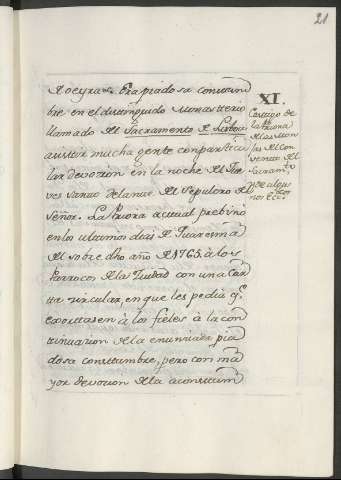 21
Aoeyras. Era piadosa costum
bre en el distinguido Monasterio
llamado del Sacramento de Lisboa
asistir mucha gente con particu
lar devocion en la noche del Jue
ves Santo delante del Sepulcro del
Señor. La Priora actual previno
en los ultimos dias de Quaresma
del sobre dho año de 1765 à los
Parrocos de la Ciudad con una Car
ta circular, en que les pedia q.e
exôitasen à los fieles à la con
tinuacion de la enunciada pia
dosa constumbre, pero con ma
yor devocion de la aconstum
XI.
Castigo de
la Priora
de las Mon
jas del Con
vento del
Sacram.to
y de algu
nos Ecc.cos